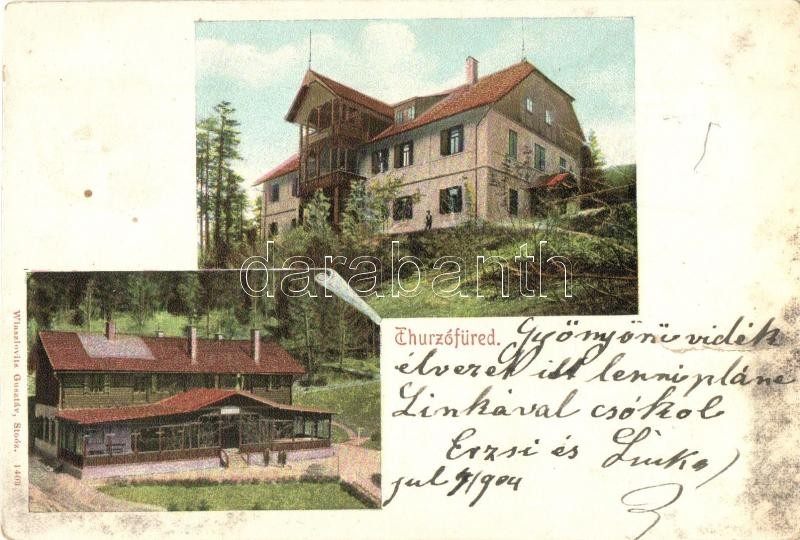 darabanth
Thurzófüred.
Gyönyörü vidék
élvezet itt lenni pláne
Linkával csókol
Erzsi és Linka
jul 7/904
Winszlovits Gusztáv, Stósz. 1409